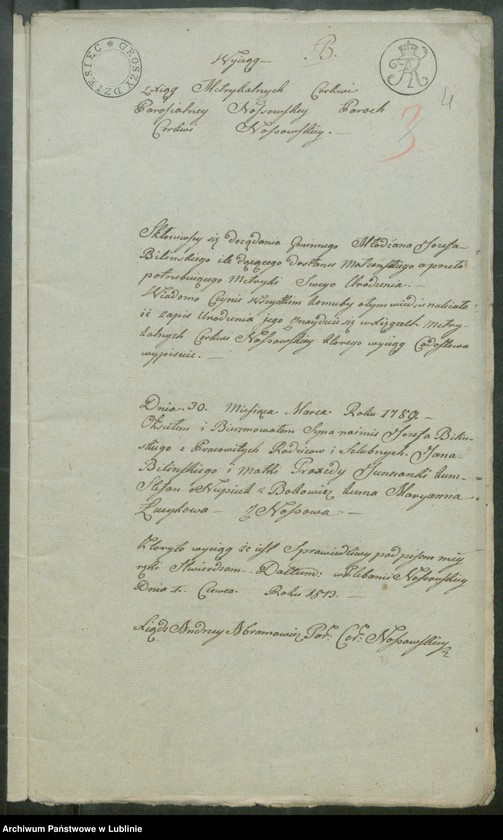 GROSZY DZIESIĘC
B.
4
3
Wyciąg
z Xiąg Metrykalnych Cerkwi
Parofialney Nossowskiey Paroch
Cerkwi Nossowskiey.
Skłoniwszy się do żądania Gminnego Młodziana Jozefa
Bilinskiego do stanu Małżeńskiego a przeto
potrzebuiącego Metryki Swego Urodzenia.
Wiadomo Czynię Wszystkim komuby o tym wiedzieć należało
iż zapis Urodzenia jego znayduie się w Xięgach Metry-
kalnych Cerkwi Nossowskiey ktorego wyciąg Co do słowa
wypisuię.
Dnia 30. Miesiąca Marca Roku 1789
Okrzciłem i Bierzmowałem Syna na imie Jozefa Bilin-
skiego z Pracowitych Rodzicow i Szlubnych Jana
Bilinskiego i matki Praxedy kum
Stefan z Maryanna
z Nossowa
Ktoryto wyciąg że iest Sprawiedliwy podpisem mey
ręki Stwierdzam Dattum: w Plebanii Nossowskiey
Dnia 1. Czerwca Roku 1813.
Xiądz Andrzey Abramowicz Par: Cer: Nossowskiey
Archiwum Państwowe w Lublinie